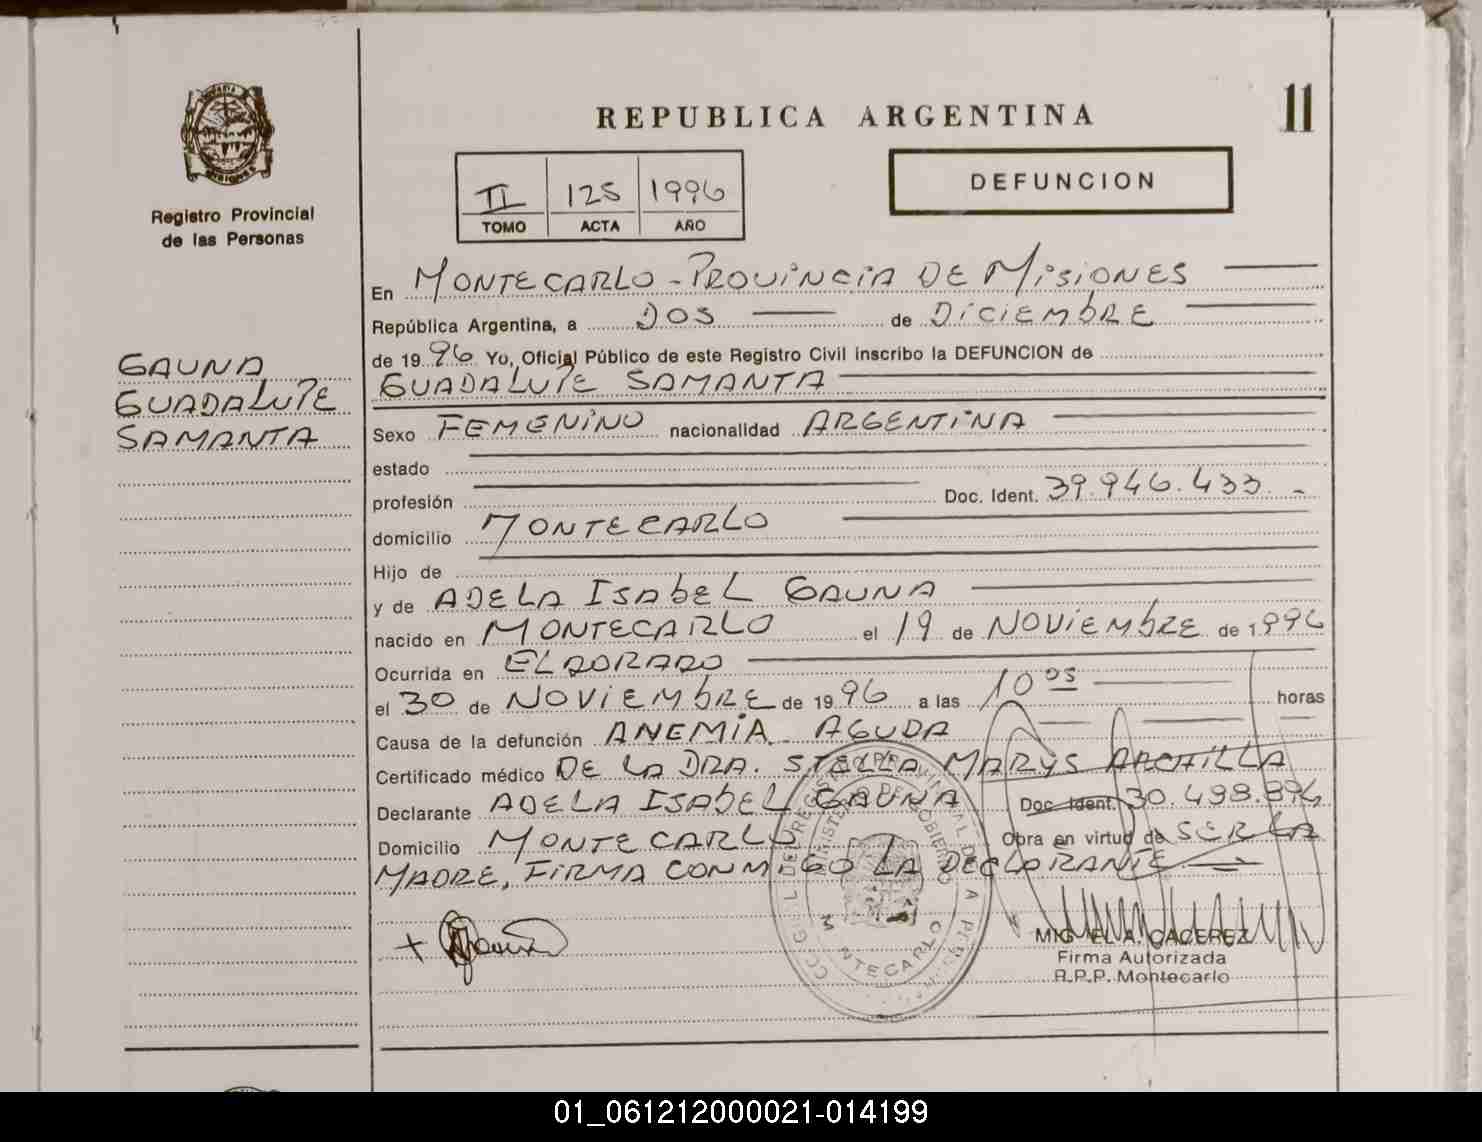 REPUBLICA ARGENTINA
11
Registro Provincial
de las Personas
II 125 1996
TOMO ACTA AÑO
DEFUNCION
GAUNA
GUADALUPE
SAMANTA
En MONTECARLO - PROVINCIA DE MISIONES
República Argentina, a DOS de DICIEMBRE
de 1996 Yo, Oficial Público de este Registro Civil inscribo la DEFUNCION de
GUADALUPE SAMANTA
Sexo FEMENINO nacionalidad ARGENTINA
estado
profesión Doc. Ident. 39.946.433.-
domicilio MONTECARLO
Hijo de
y de ADELA ISABEL GAUNA
nacido en MONTECARLO el 19 de NOVIEMBRE de 1996
Ocurrida en ELDORADO
el 30 de NOVIEMBRE de 1996 a las 10 05 horas
Causa de la defunción ANEMIA AGUDA
Certificado médico DE LA DRA. STELLA MARYS
Declarante ADELA ISABEL GAUNA Doc. Ident. 30.498.896
Domicilio MONTECARLO Obra en virtud de SER LA
MADRE, FIRMA CONMIGO LA DECLARANTE
MIGUEL A. CACEREZ
Firma Autorizada
R.P.P. Montecarlo
MONTECARLO
01_061212000021-014199